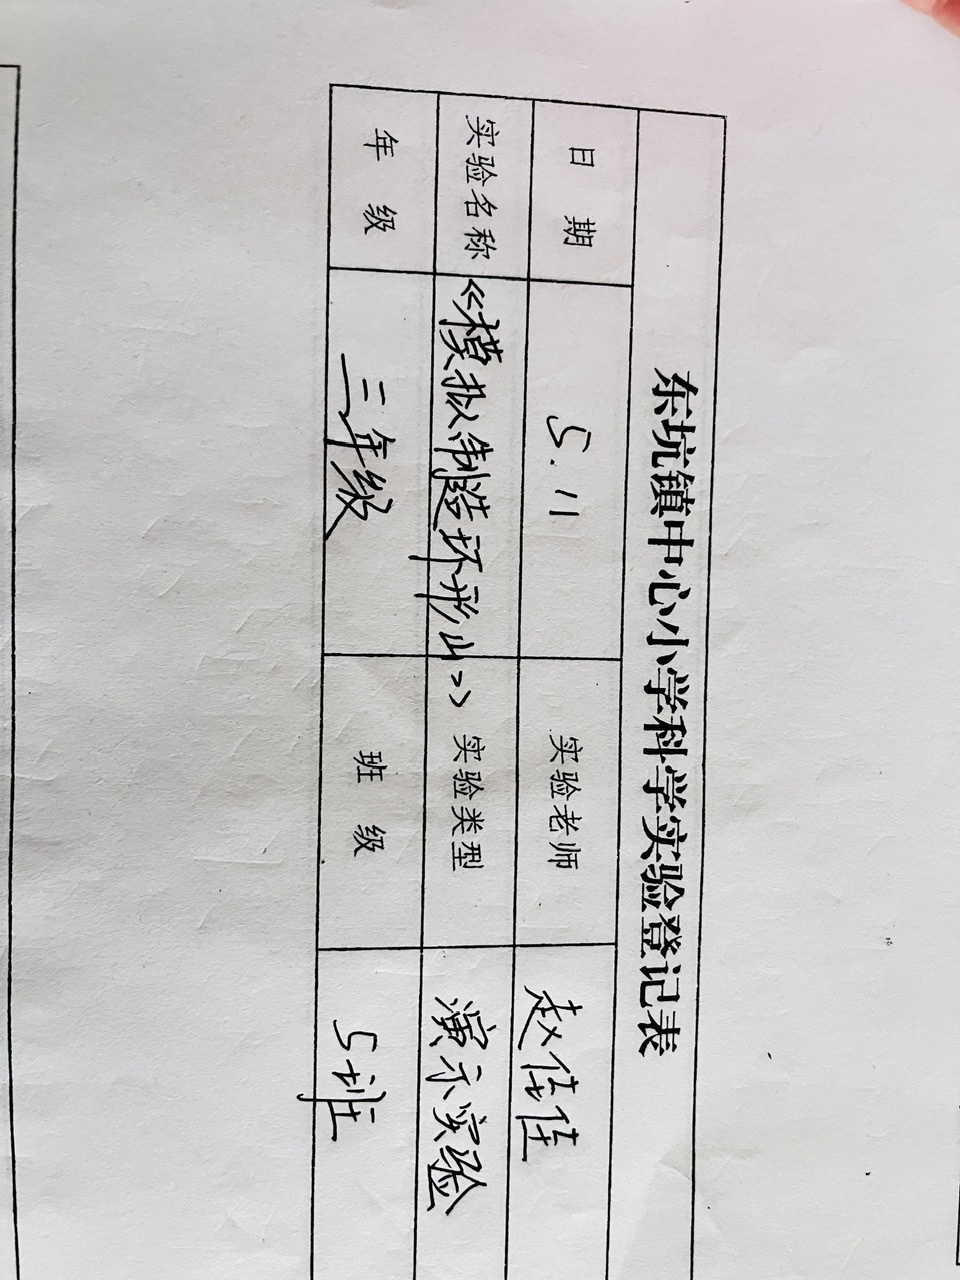 东坑镇中心小学科学实验登记表
日 期 5.11 实验老师 赵佳佳
实验名称 《模拟制造环形山》 实验类型 演示实验
年 级 三年级 班 级 5班